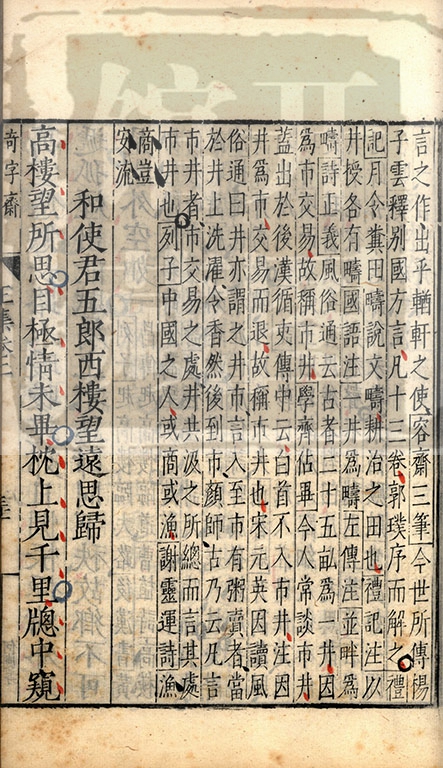 言之作出乎輶軒之使容齋三筆今世所傳楊
子雲釋别國方言凡十三卷郭璞序而解之禮
記月令糞田疇說文疇耕治之田也禮記注以
井授各有疇國語注一井為疇左傳注並畔為
疇詩正義風俗通云古者二十五畝為一井因
為市交易故稱市井學齋佔畢今人常談市井
蓋出於後漢循吏傳中云白首不入市井注因
井為市交易而退故稱市井也宋元英因讀風
俗通曰井亦謂之井市言入至市有粥賣者當
於井上洗濯令香然後到市顏師古乃云凡言
市井者市交易之處井共汲之所總而言其處
市井也列子中國之人或商或漁謝靈運詩漁
商豈
安流
和使君五郎西樓望遠思歸
高樓望所思目極情未畢枕上見千里牕中窺
奇字齋